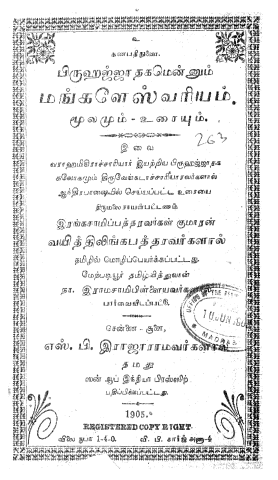 உ
கணபதிதுணை.
பிருஹஜ்ஜாதகமென்னும்
மங்களேஸ்வரியம்.
மூலமும் - உரையும்.
263
இவை
வராஹமிஹிராச்சாரியார் இயற்றிய பிருஹஜ்ஜாதக
ஆந்திரபாஷையில் செய்யப்பட்ட உரையை
இரங்கசாமிப்பத்தரவர்கள் குமாரன்
வயித்திலிங்கபத்தரவர்களால்
தமிழில் மொழிப்பெயர்க்கப்பட்டது.
மேற்படியூர் தமிழ் வித்துவான்
நா. இராமசாமிபிள்ளையவர்களால்
பார்வையிடப்பட்டு,
சென்னை - சூளை,
எஸ். பி. இராஜாராமவர்களால்
தமது
ஸன் ஆப் இந்தியா பிரஸ்ஸிற்
பதிப்பிக்கப்பட்டது.
MADRAS
1905.
REGISTERED COPY RIGHT.
விலை ரூபா 1-4-0. வி. பி. சார்ஜ் அணா-4